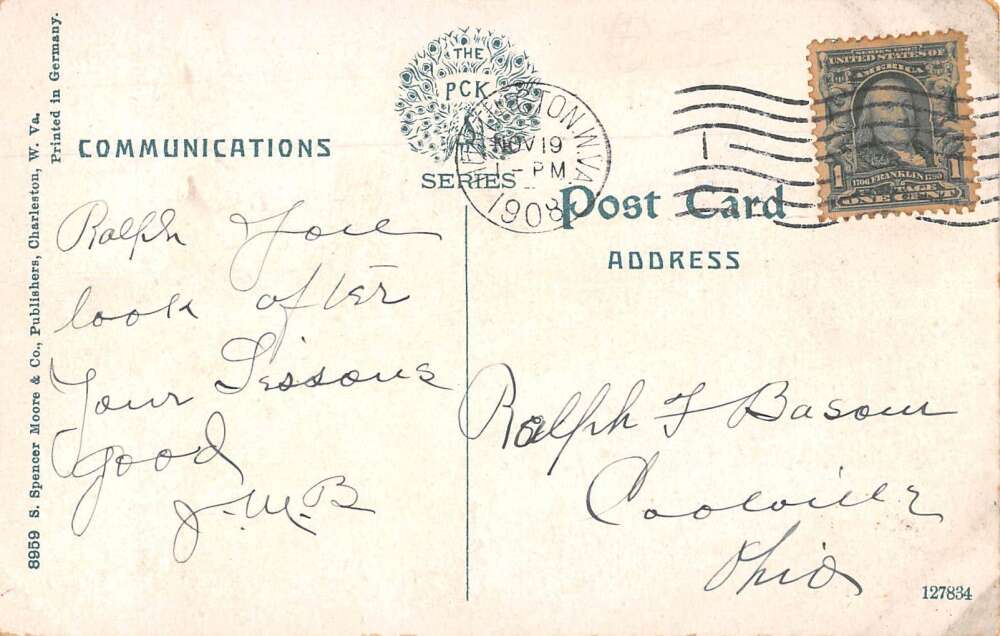 8959 S. Spencer Moore & Co., Publishers, Charleston, W. Va.
Printed in Germany.
COMMUNICATIONS
THE
PCK
SERIES
NOV 19
1 - PM
1908
TON W.VA
SERIES 1902
UNITED STATES OF
AMERICA
1706 FRANKLIN 1790
POSTAGE
1 1
ONE CENT
Post Card
ADDRESS
Ralph You
look after
Your Lessons
good
J.M.B
Ralph F Basom
Coolville
Ohio
127834